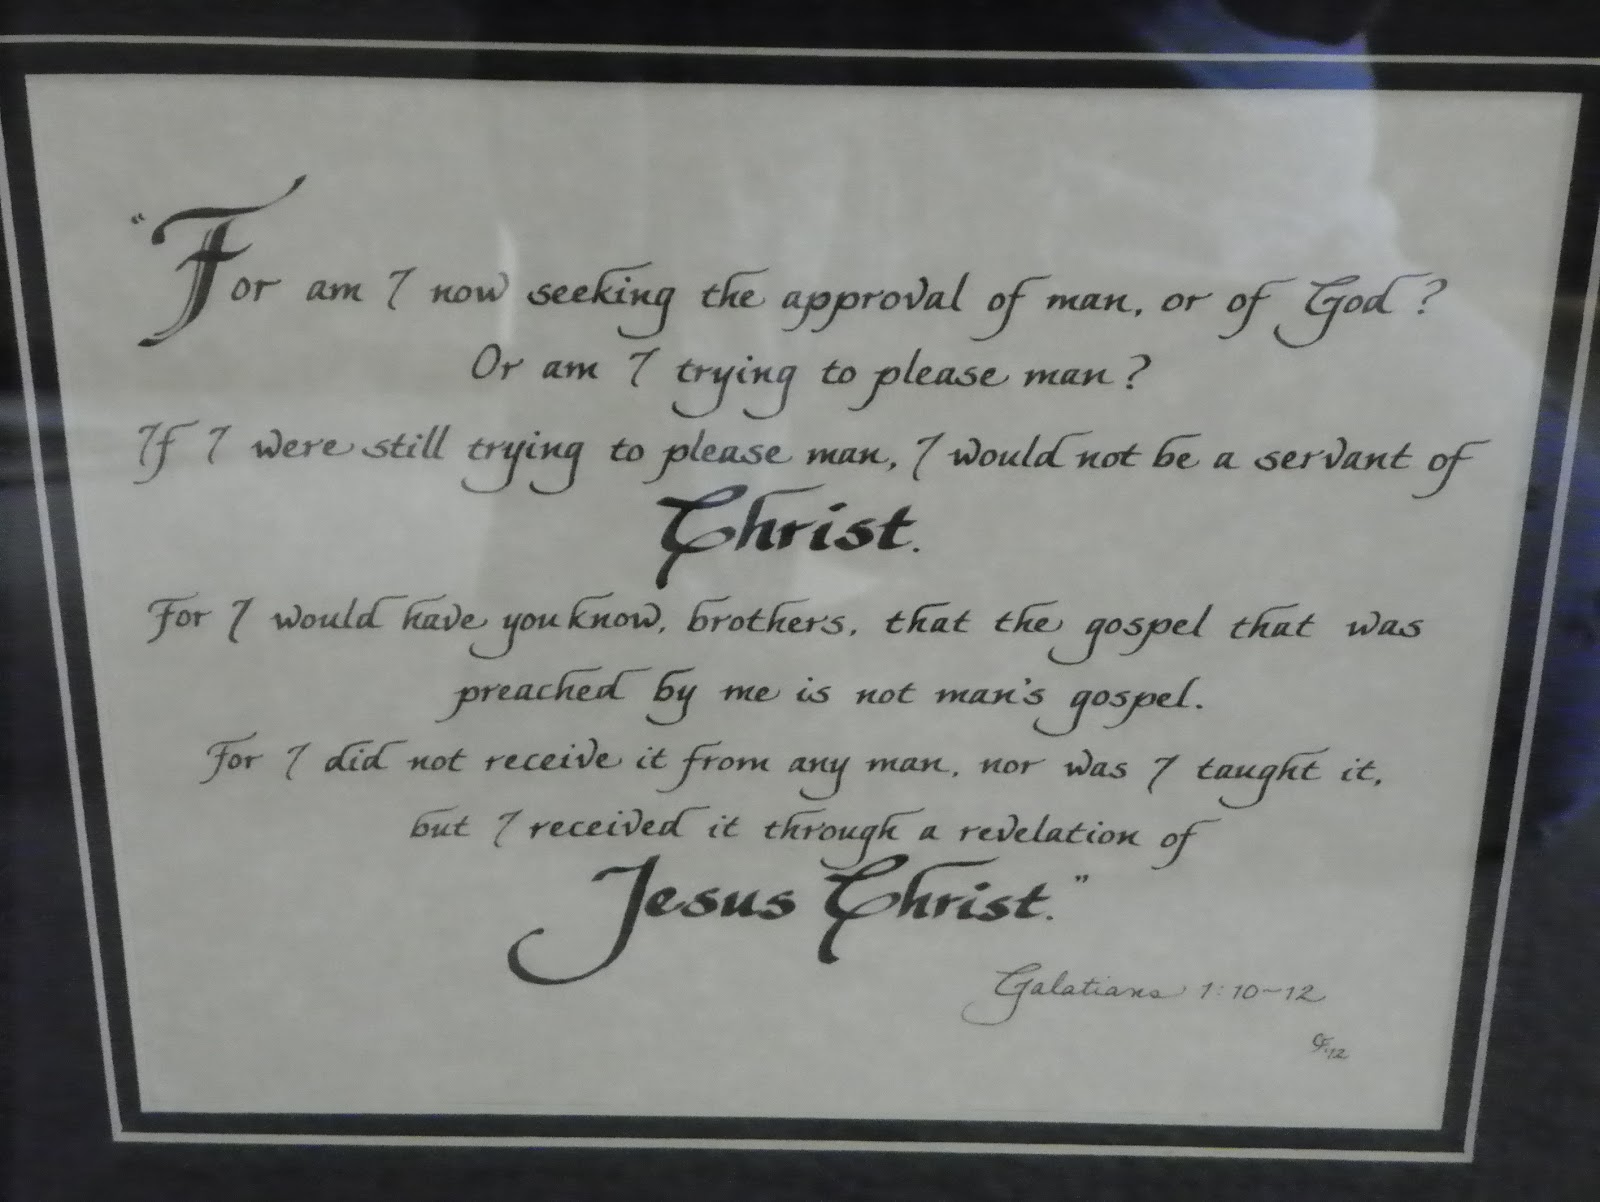 "For am I now seeking the approval of man, or of God?
Or am I trying to please man?
If I were still trying to please man, I would not be a servant of
Christ.
For I would have you know, brothers, that the gospel that was
preached by me is not man's gospel.
For I did not receive it from any man, nor was I taught it,
but I received it through a revelation of
Jesus Christ."
Galatians 1:10-12